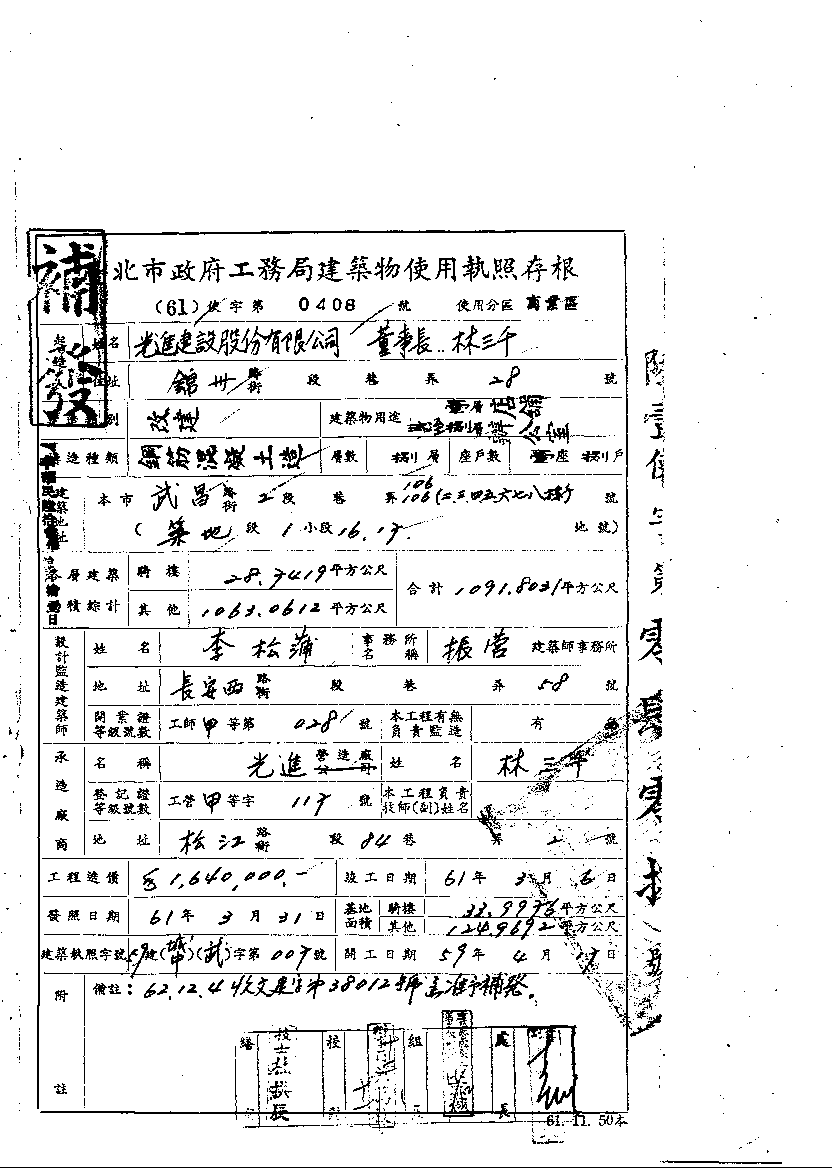 補發
北市政府工務局建築物使用執照存根
(61)使字第 0408 號 使用分區 商業區
姓名 光進建設股份有限公司 董事長 林三千
住址 錦州 路街 段 巷 弄 28 號
別 改建 建築物用途 壹層店舖 辦公室
造種類 鋼筋混凝土造 層數 捌層 座戶數 壹座 捌戶
建築地址 本市 武昌 路街 2段 巷 弄 106 號
106
(築地 段 1 小段 16.17 地號)
層建築積綜計 騎樓 28.7419平方公尺 合計 1091.8031平方公尺
其他 1063.0612 平方公尺
設計監造建築師 姓名 李松蒲 事務所名稱 振營 建築師事務所
地址 長安西 路街 段 巷 弄 58 號
開業證等級號數 工師甲等第 0281 號 本工程有無負責監造 有
承造廠商 名稱 光進 營造廠公司 姓名 林三千
登記證等級號數 工營甲等字 117 號 本工程負責技師(副)姓名
地址 松江 路街 段 84 巷 弄 2 號
工程造價 $1,640,000.- 竣工日期 61年 3月 6日
發照日期 61年 3月 31日 基地面積 騎樓 33.9936平方公尺
其他 124.9692平方公尺
建築執照字號 59建(城中)(武)字第 007號 開工日期 59年 4月 17日
附註 備註：62.12.4收文建字第38012號函准予補發。
繕 技士 校對 組長 處長
61. 11. 50本